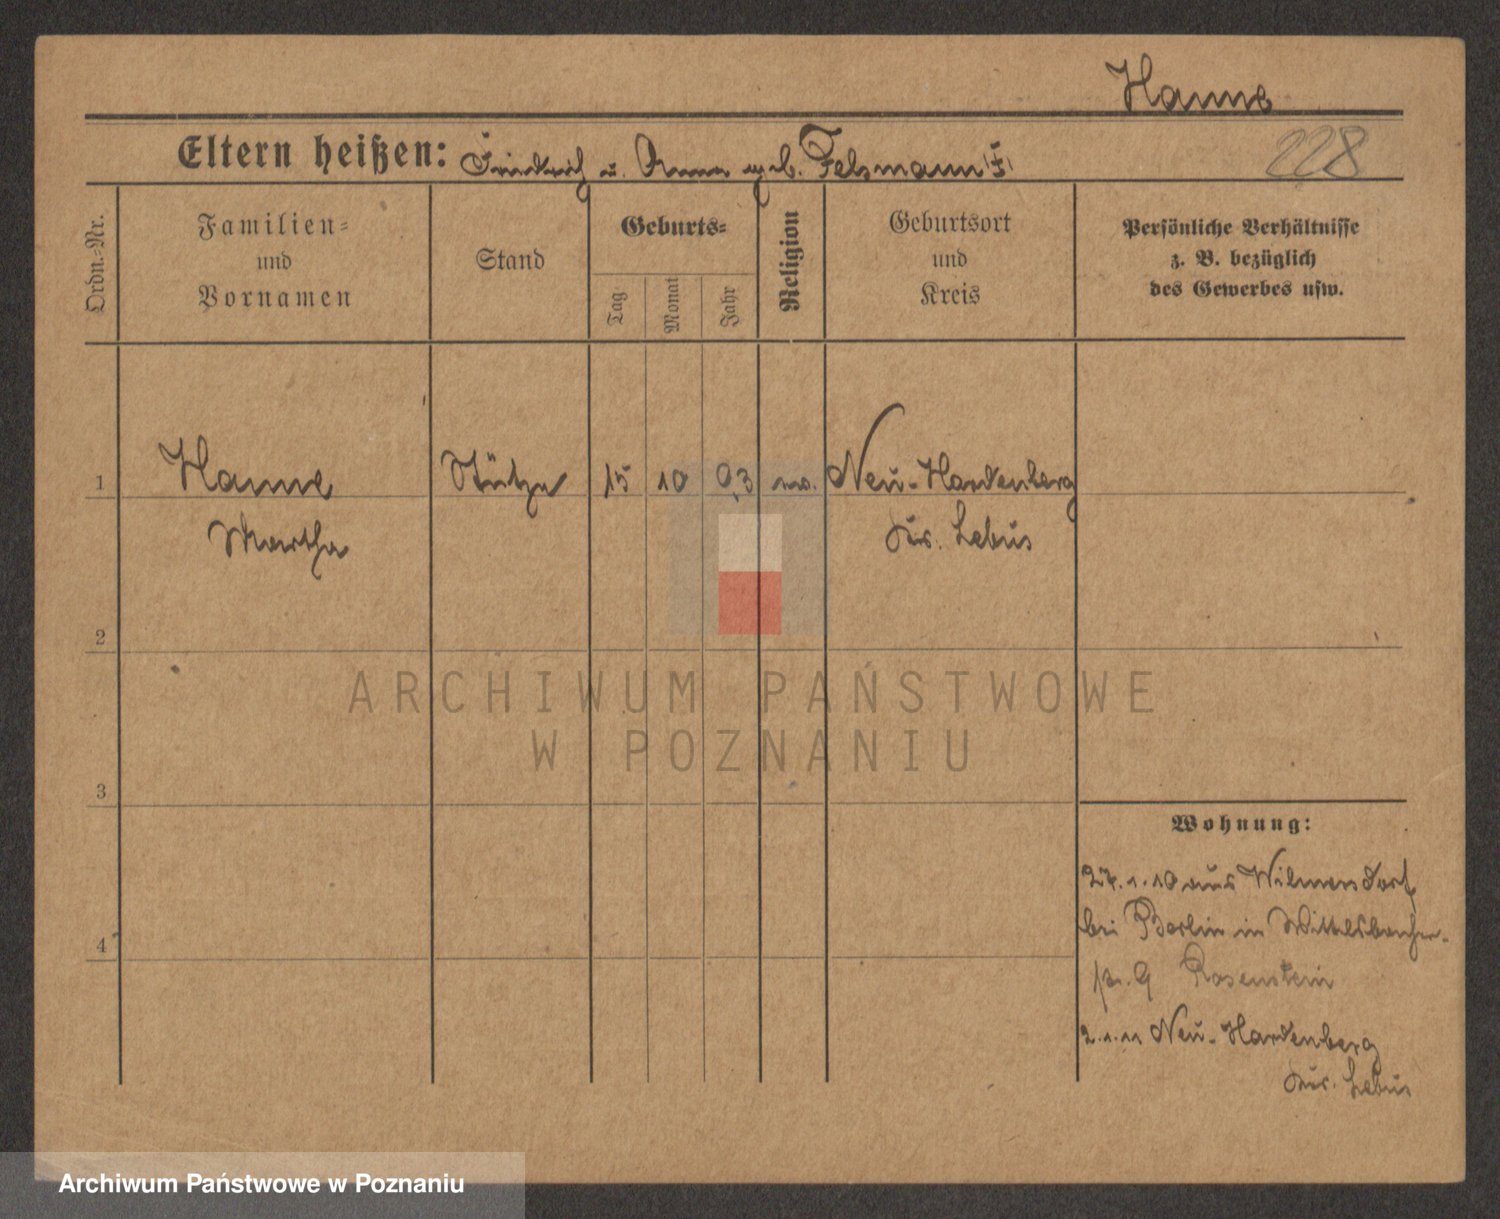 Hanne
Eltern heißen: Friedrich u. Anna geb. Felsmann (†)
228
Ordn.-Nr.
Familien-
und
Vornamen
Stand
Geburts-
Tag
Monat
Jahr
Religion
Geburtsort
und
Kreis
Persönliche Verhältnisse
z. B. bezüglich
des Gewerbes usw.
1 Hanne Stütze 15 10 93 ev. Neu-Hardenberg
Martha Kr. Lebus
2
3
Wohnung:
1.10 aus Wilmersdorf
bei Berlin in Wittelsbacher-
4
str. 9 Rosenstein
2.1.11 Neu-Hardenberg
Kr. Lebus
ARCHIWUM PAŃSTWOWE
W POZNANIU
Archiwum Państwowe w Poznaniu